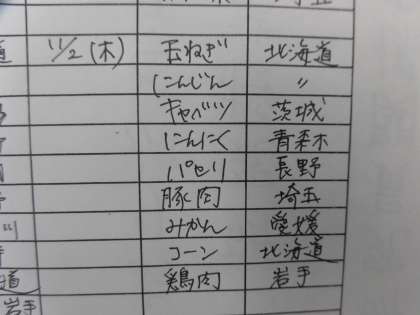 道 11/2(木) 玉ねぎ 北海道
にんじん 〃
キャベツ 茨城
にんにく 青森
パセリ 長野
豚肉 埼玉
川 みかん 愛媛
コーン 北海道
道 鶏肉 岩手
岩手